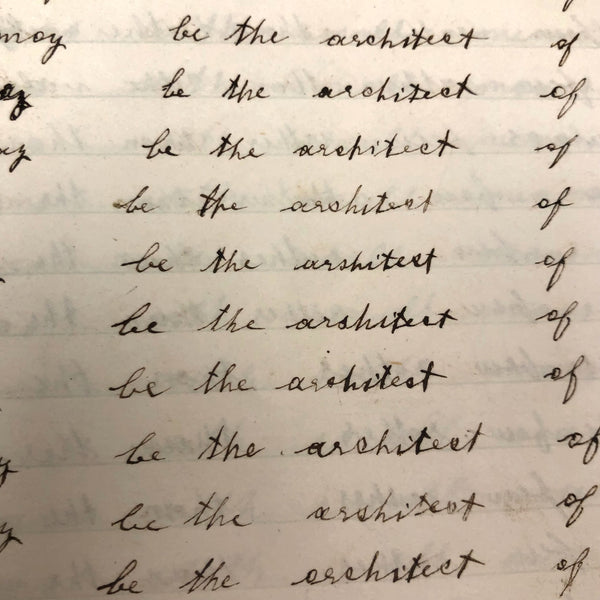 may be the architect of
be the architect of
be the architect of
be the architect of
be the architect of
be the architect of
be the architect of
be the architect of
be the architect of
be the architect of